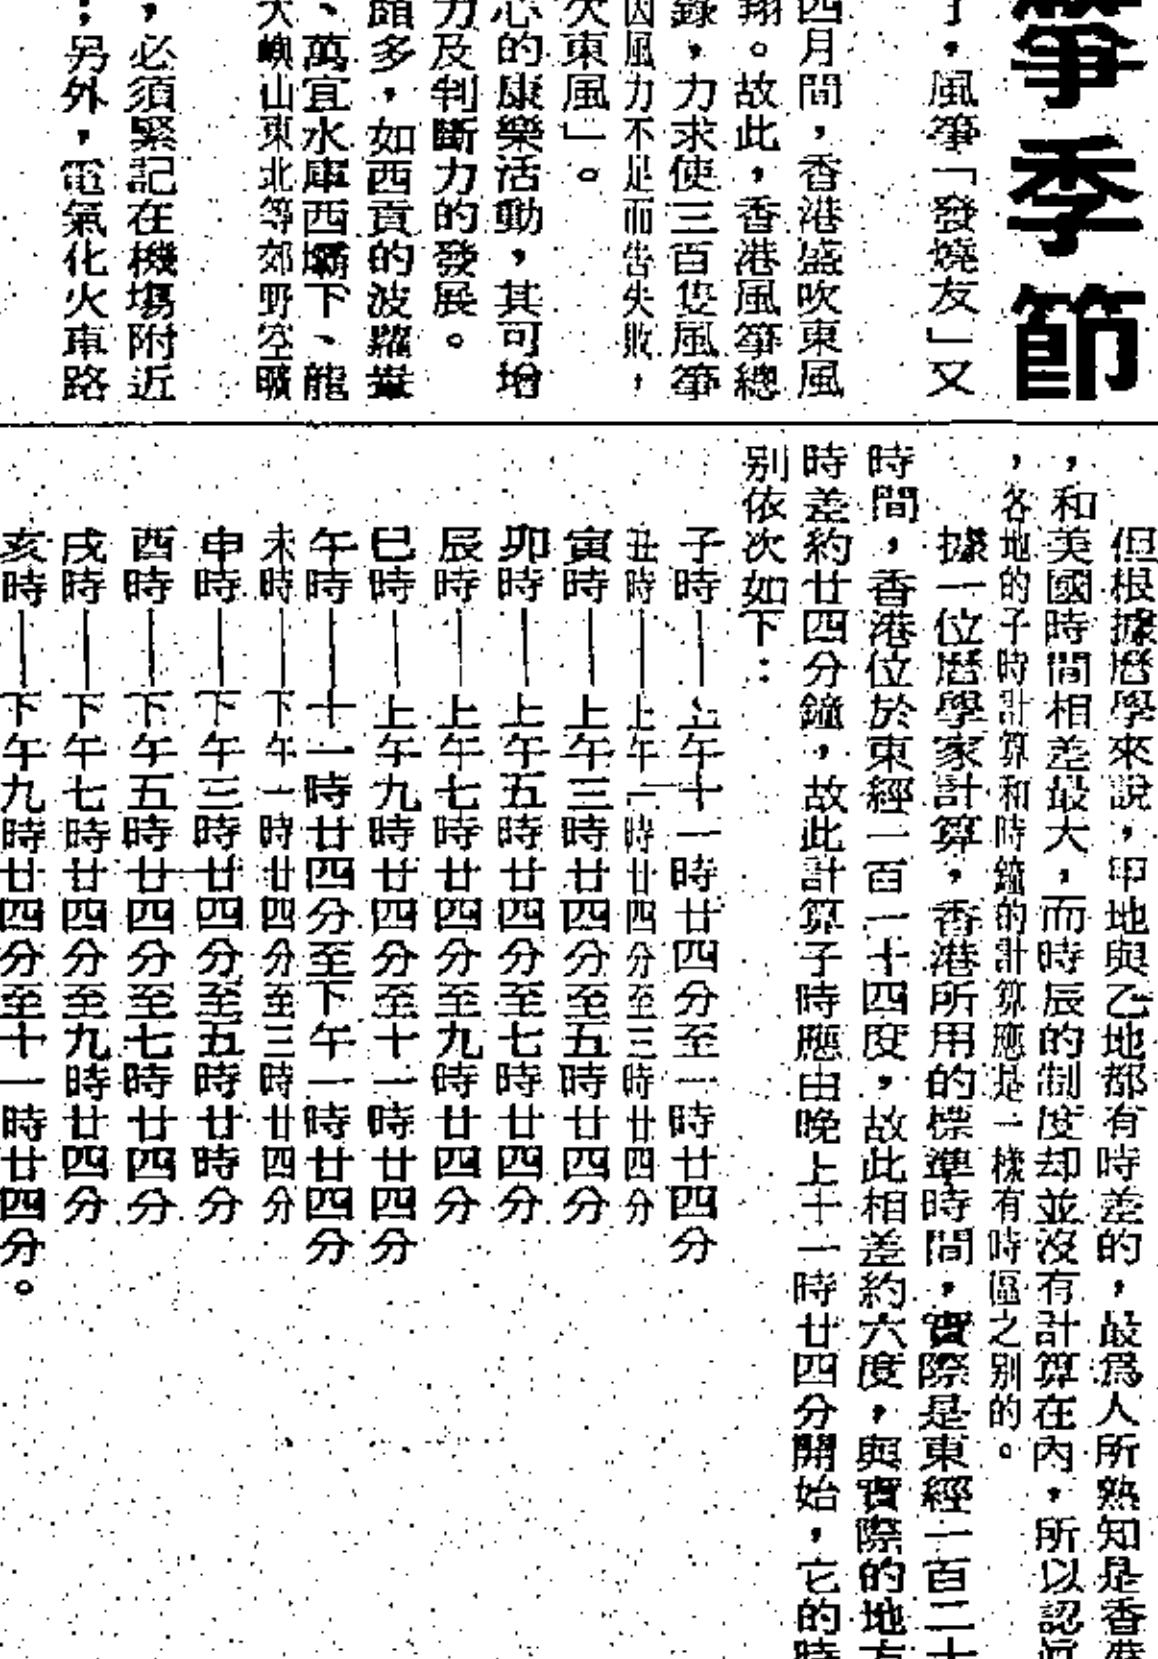 箏季節
了，風箏「發燒友」又
四月間，香港盛吹東風
翔。故此，香港風箏總
錄，力求使三百隻風箏
因風力不足而告失敗，
欠東風」。
心的康樂活動，其可增
力及判斷力的發展。
頗多，如西貢的波羅輋
、萬宜水庫西壩下、龍
大嶼山東北等郊野空曠
，必須緊記在機塲附近
；另外，電氣化火車路
但根據曆學來說，甲地與乙地都有時差的，最爲人所熟知是香港
，和美國時間相差最大，而時辰的制度却並沒有計算在內，所以認眞
，各地的子時計算和時鐘的計算應是一樣有時區之別的。
據一位曆學家計算，香港所用的標準時間，實際是東經一百二十
時間，香港位於東經一百一十四度，故此相差約六度，與實際的地方
時差約廿四分鐘，故此計算子時應由晚上十一時廿四分開始，它的時
別依次如下：
子時——上午十一時廿四分至一時廿四分
丑時——上午一時廿四分至三時廿四分
寅時——上午三時廿四分至五時廿四分
卯時——上午五時廿四分至七時廿四分
辰時——上午七時廿四分至九時廿四分
巳時——上午九時廿四分至十一時廿四分
午時——十一時廿四分至下午一時廿四分
未時——下午一時廿四分至三時廿四分
申時——下午三時廿四分至五時廿時分
酉時——下午五時廿四分至七時廿四分
戌時——下午七時廿四分至九時廿四分
亥時——下午九時廿四分至十一時廿四分。